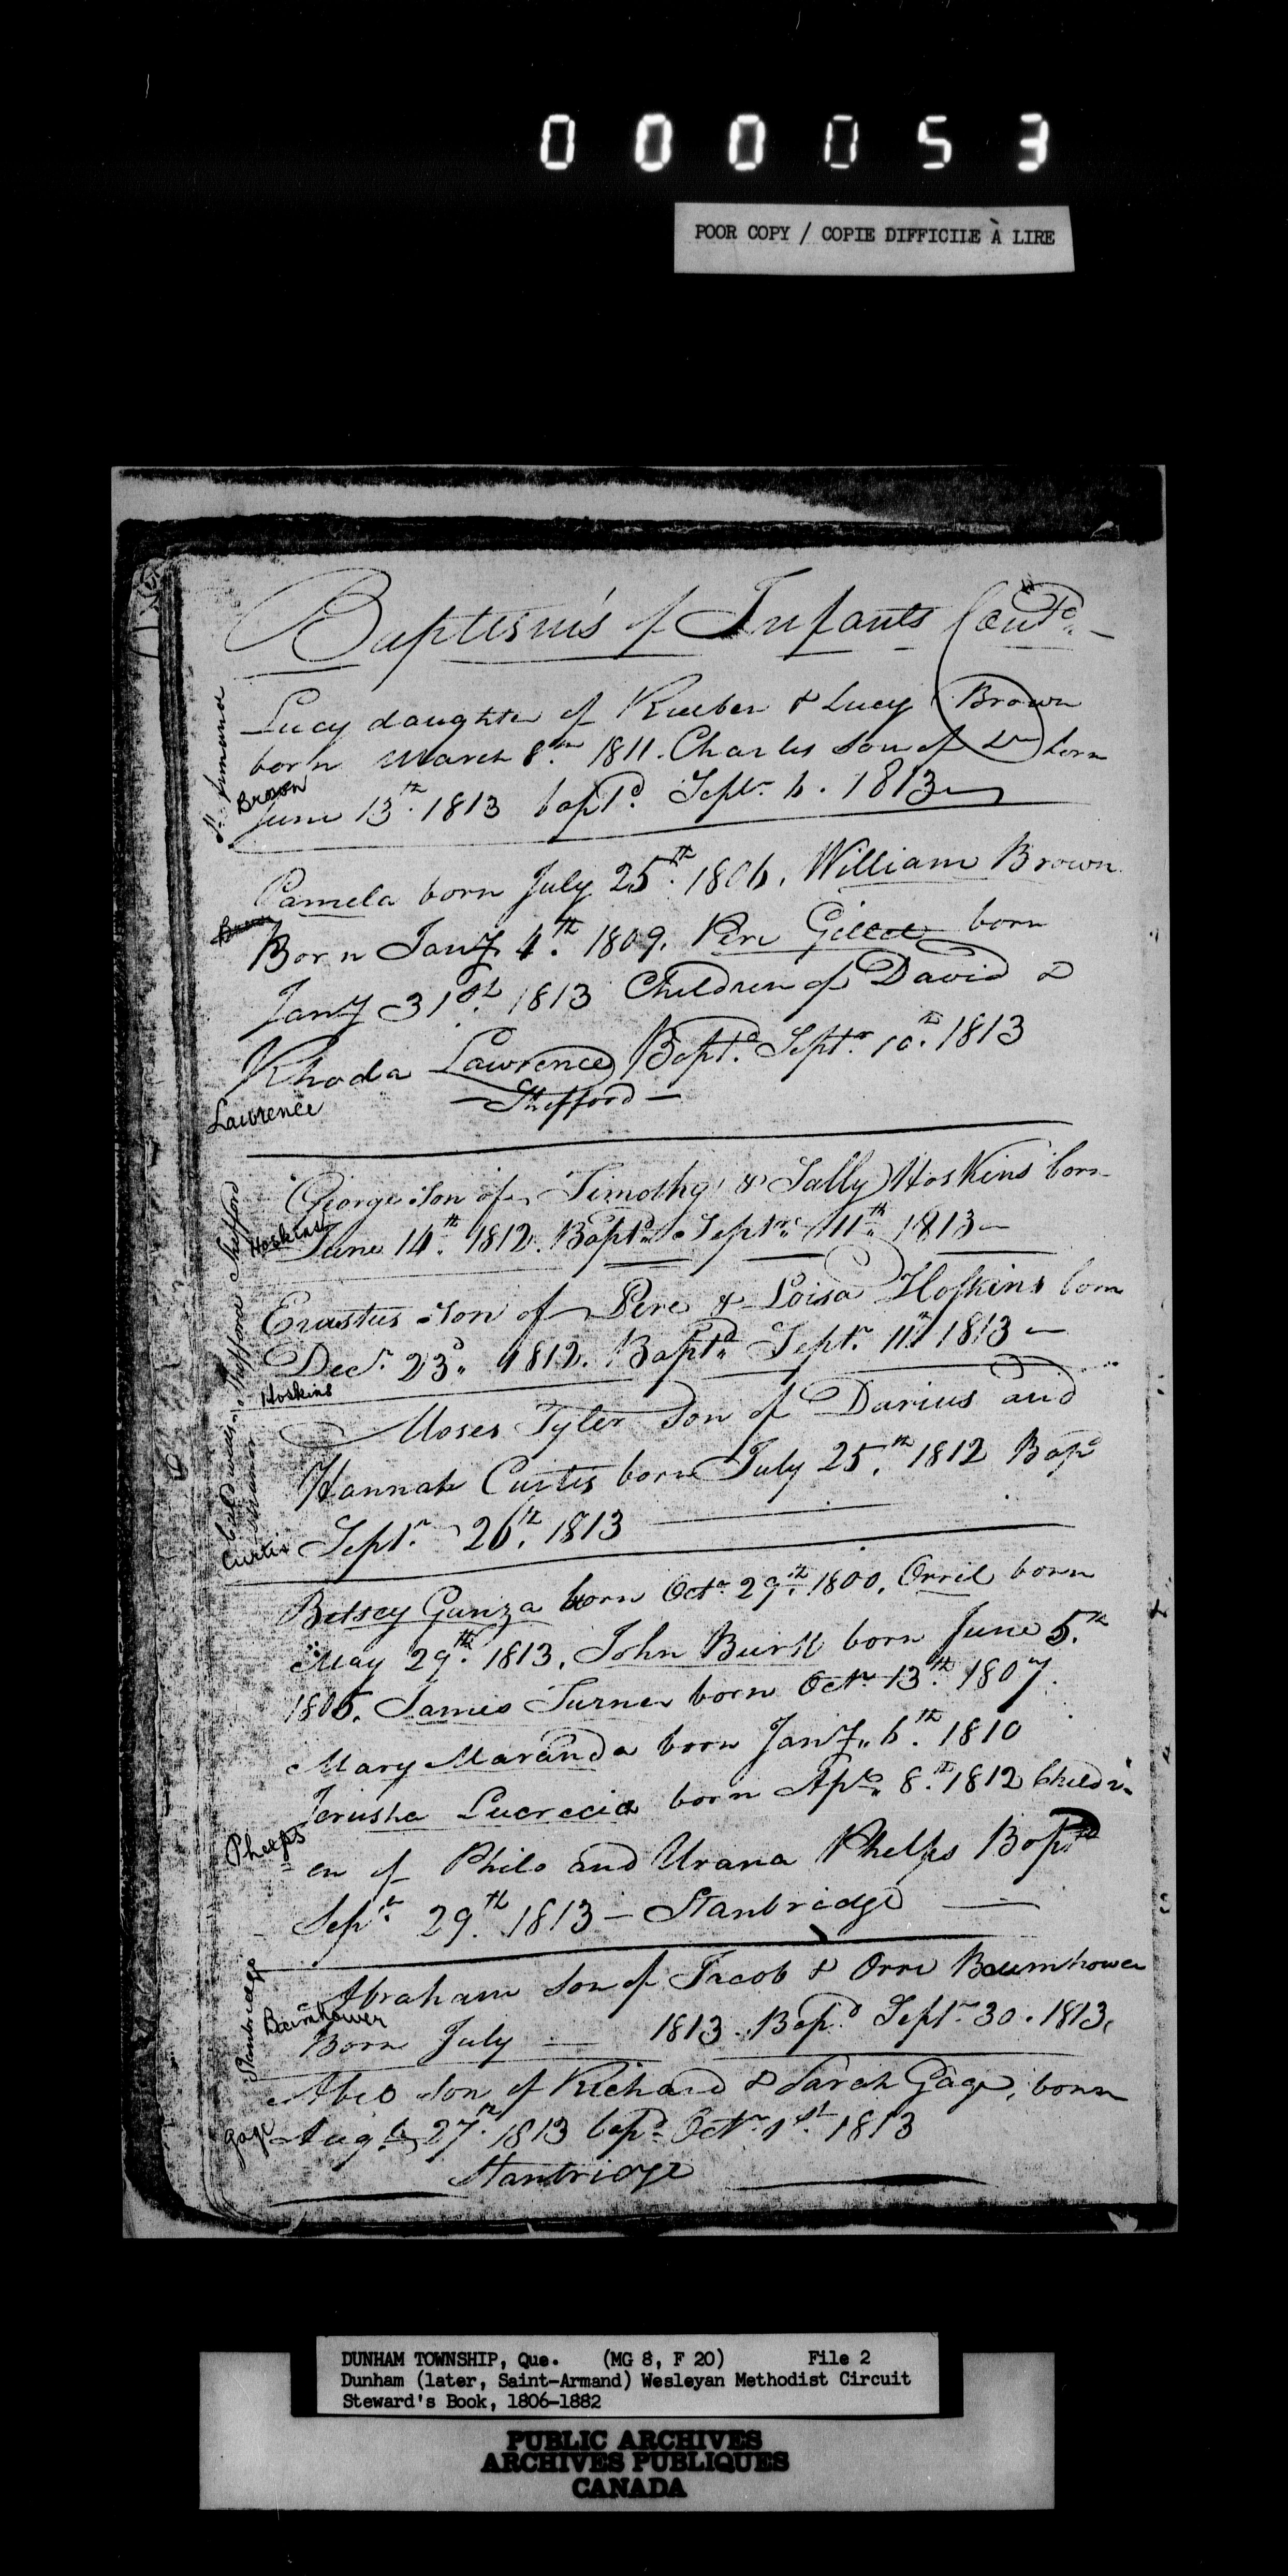 000053
POOR COPY / COPIE DIFFICILE À LIRE
Baptism's of Infants Contd.
St. Armand
Lucy daughter of Rueben & Lucy Brown
born March 8th 1811. Charles son of Do born
Brown
June 13th. 1813 baptd. Septr 6. 1813
Pamela born July 25th. 1806. William Brown
Brown
Born Jany. 4th. 1809. Pere Gilect born
Jany 31st. 1813 Children of David &
Rhoda Lawrence Baptd. Septr. 10th. 1813
Lawrence
— Shefford —
George Son of Timothy & Sally Hoskins born
Shefford
Hoskins
June 14th. 1812. Baptd. Septr. 11th. 1813 —
Erastus Son of Pere & Loisa Hoskins born
Decr. 23d. 1812. Baptd. Septr. 11th 1813 —
Shefford
Hoskins
Moses Tyler Son of Darius and
Hannah Curtis born July 25th. 1812 Bapd
Caldwells Manor
Curtis
Septr. 26th. 1813
Betsey Gunza born Octr. 29th. 1800. Orril born
May 29th. 1813. John Burk born June 5th.
1805. James Turner born Octr 13th. 1807.
Mary Maranda born Jany. 6th. 1810
Jerusha Lucrecia born Apl. 8th. 1812 Childr-
Phelps
en of Philo and Urana Phelps Baptd
Sepr. 29th. 1813 — Stanbridge
Stanbridge
Abraham Son of Jacob & Orre Baumhower
Baumhower
Born July — 1813. Bapd Septr. 30. 1813.
Abel Son of Richard & Sarah Gage, born
Gage
Augt. 27th. 1813 bapd Octr. 1st. 1813
Stanbridge
DUNHAM TOWNSHIP, Que. (MG 8, F 20) File 2
Dunham (later, Saint-Armand) Wesleyan Methodist Circuit
Steward's Book, 1806-1882
PUBLIC ARCHIVES
ARCHIVES PUBLIQUES
CANADA